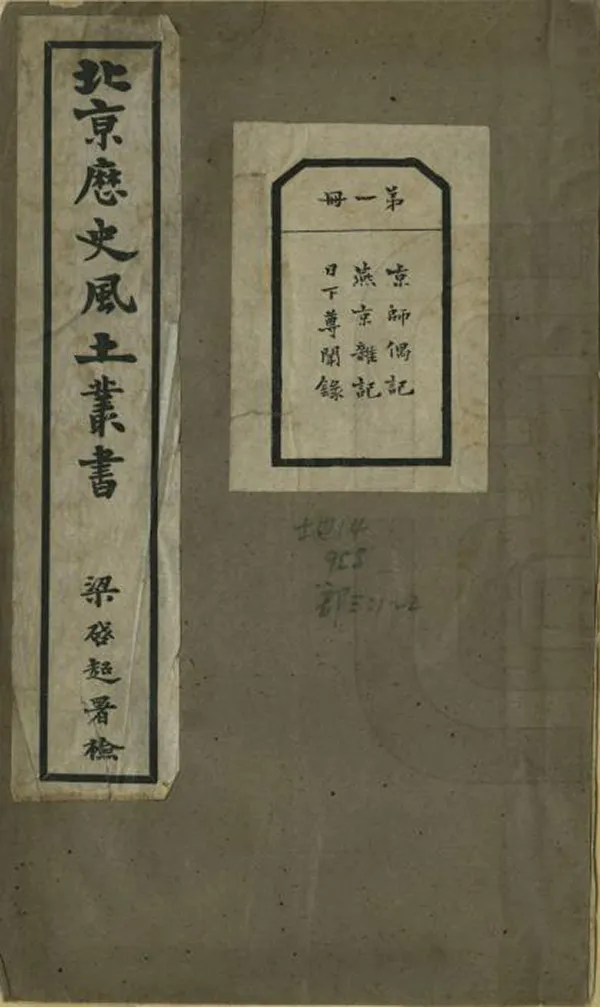 北京歷史風土叢書
梁啓超署檢
第一冊
京師偶記
燕京雜記
日下尊聞錄
地14
958